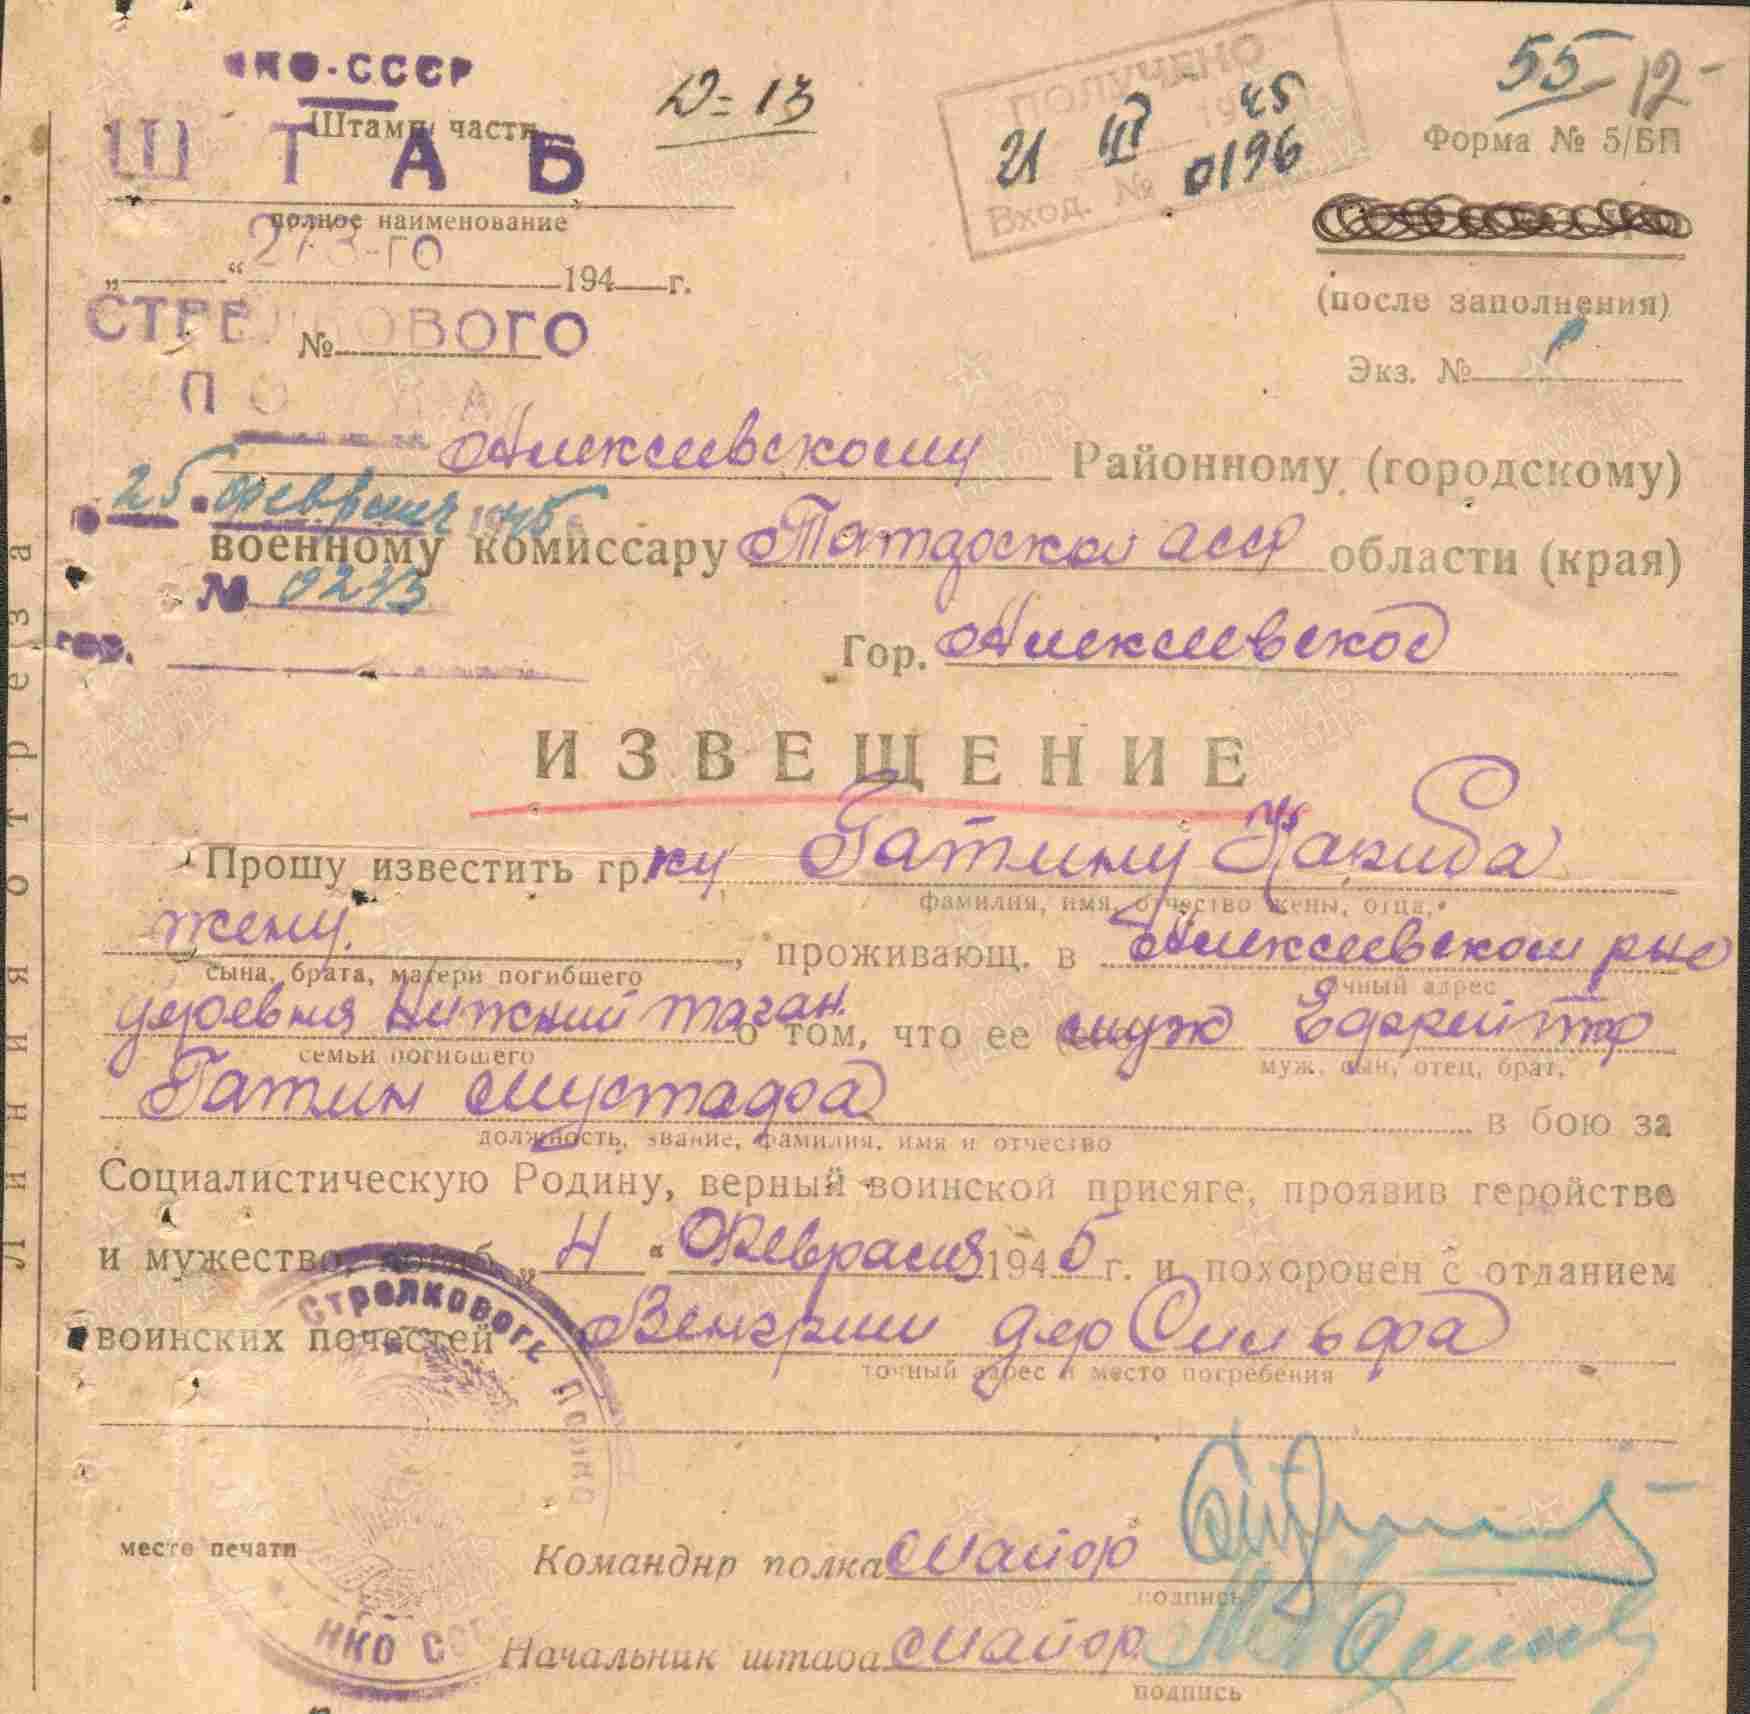 НКО-СССР
Штамп части
ШТАБ
полное наименование
273-го
„ “ 194 г.
СТРЕЛКОВОГО
№
ПОЛКА
25 февраля 1945
№ 0243
гор.
Д-13
ПОЛУЧЕНО
21 III 45
Вход. № 0196
55 12-
Форма № 5/БП
(после заполнения)
Экз. № 1
Алексеевскому Районному (городскому)
военному комиссару Татарской АССР области (края)
Гор. Алексеевское
ИЗВЕЩЕНИЕ
Прошу известить гр.ку Гатину
фамилия, имя, отчество жены, отца,
жену. , проживающ. в Алексеевском рне
сына, брата, матери погибшего точный адрес
деревня Нижний таган. о том, что ее муж Ефрейтор
семьи погибшего муж, сын, отец, брат,
Гатин Мустафа в бою за
должность, звание, фамилия, имя и отчество
Социалистическую Родину, верный воинской присяге, проявив геройство
и мужество, погиб „4“ Февраля 1945 г. и похоронен с отданием
воинских почестей Венгрии дер
точный адрес и место погребения
Стрелкового Полка
НКО СССР
место печати
Командир полка майор
подпись
Начальник штаба майор
подпись
Линия отреза
ПАМЯТЬ НАРОДА